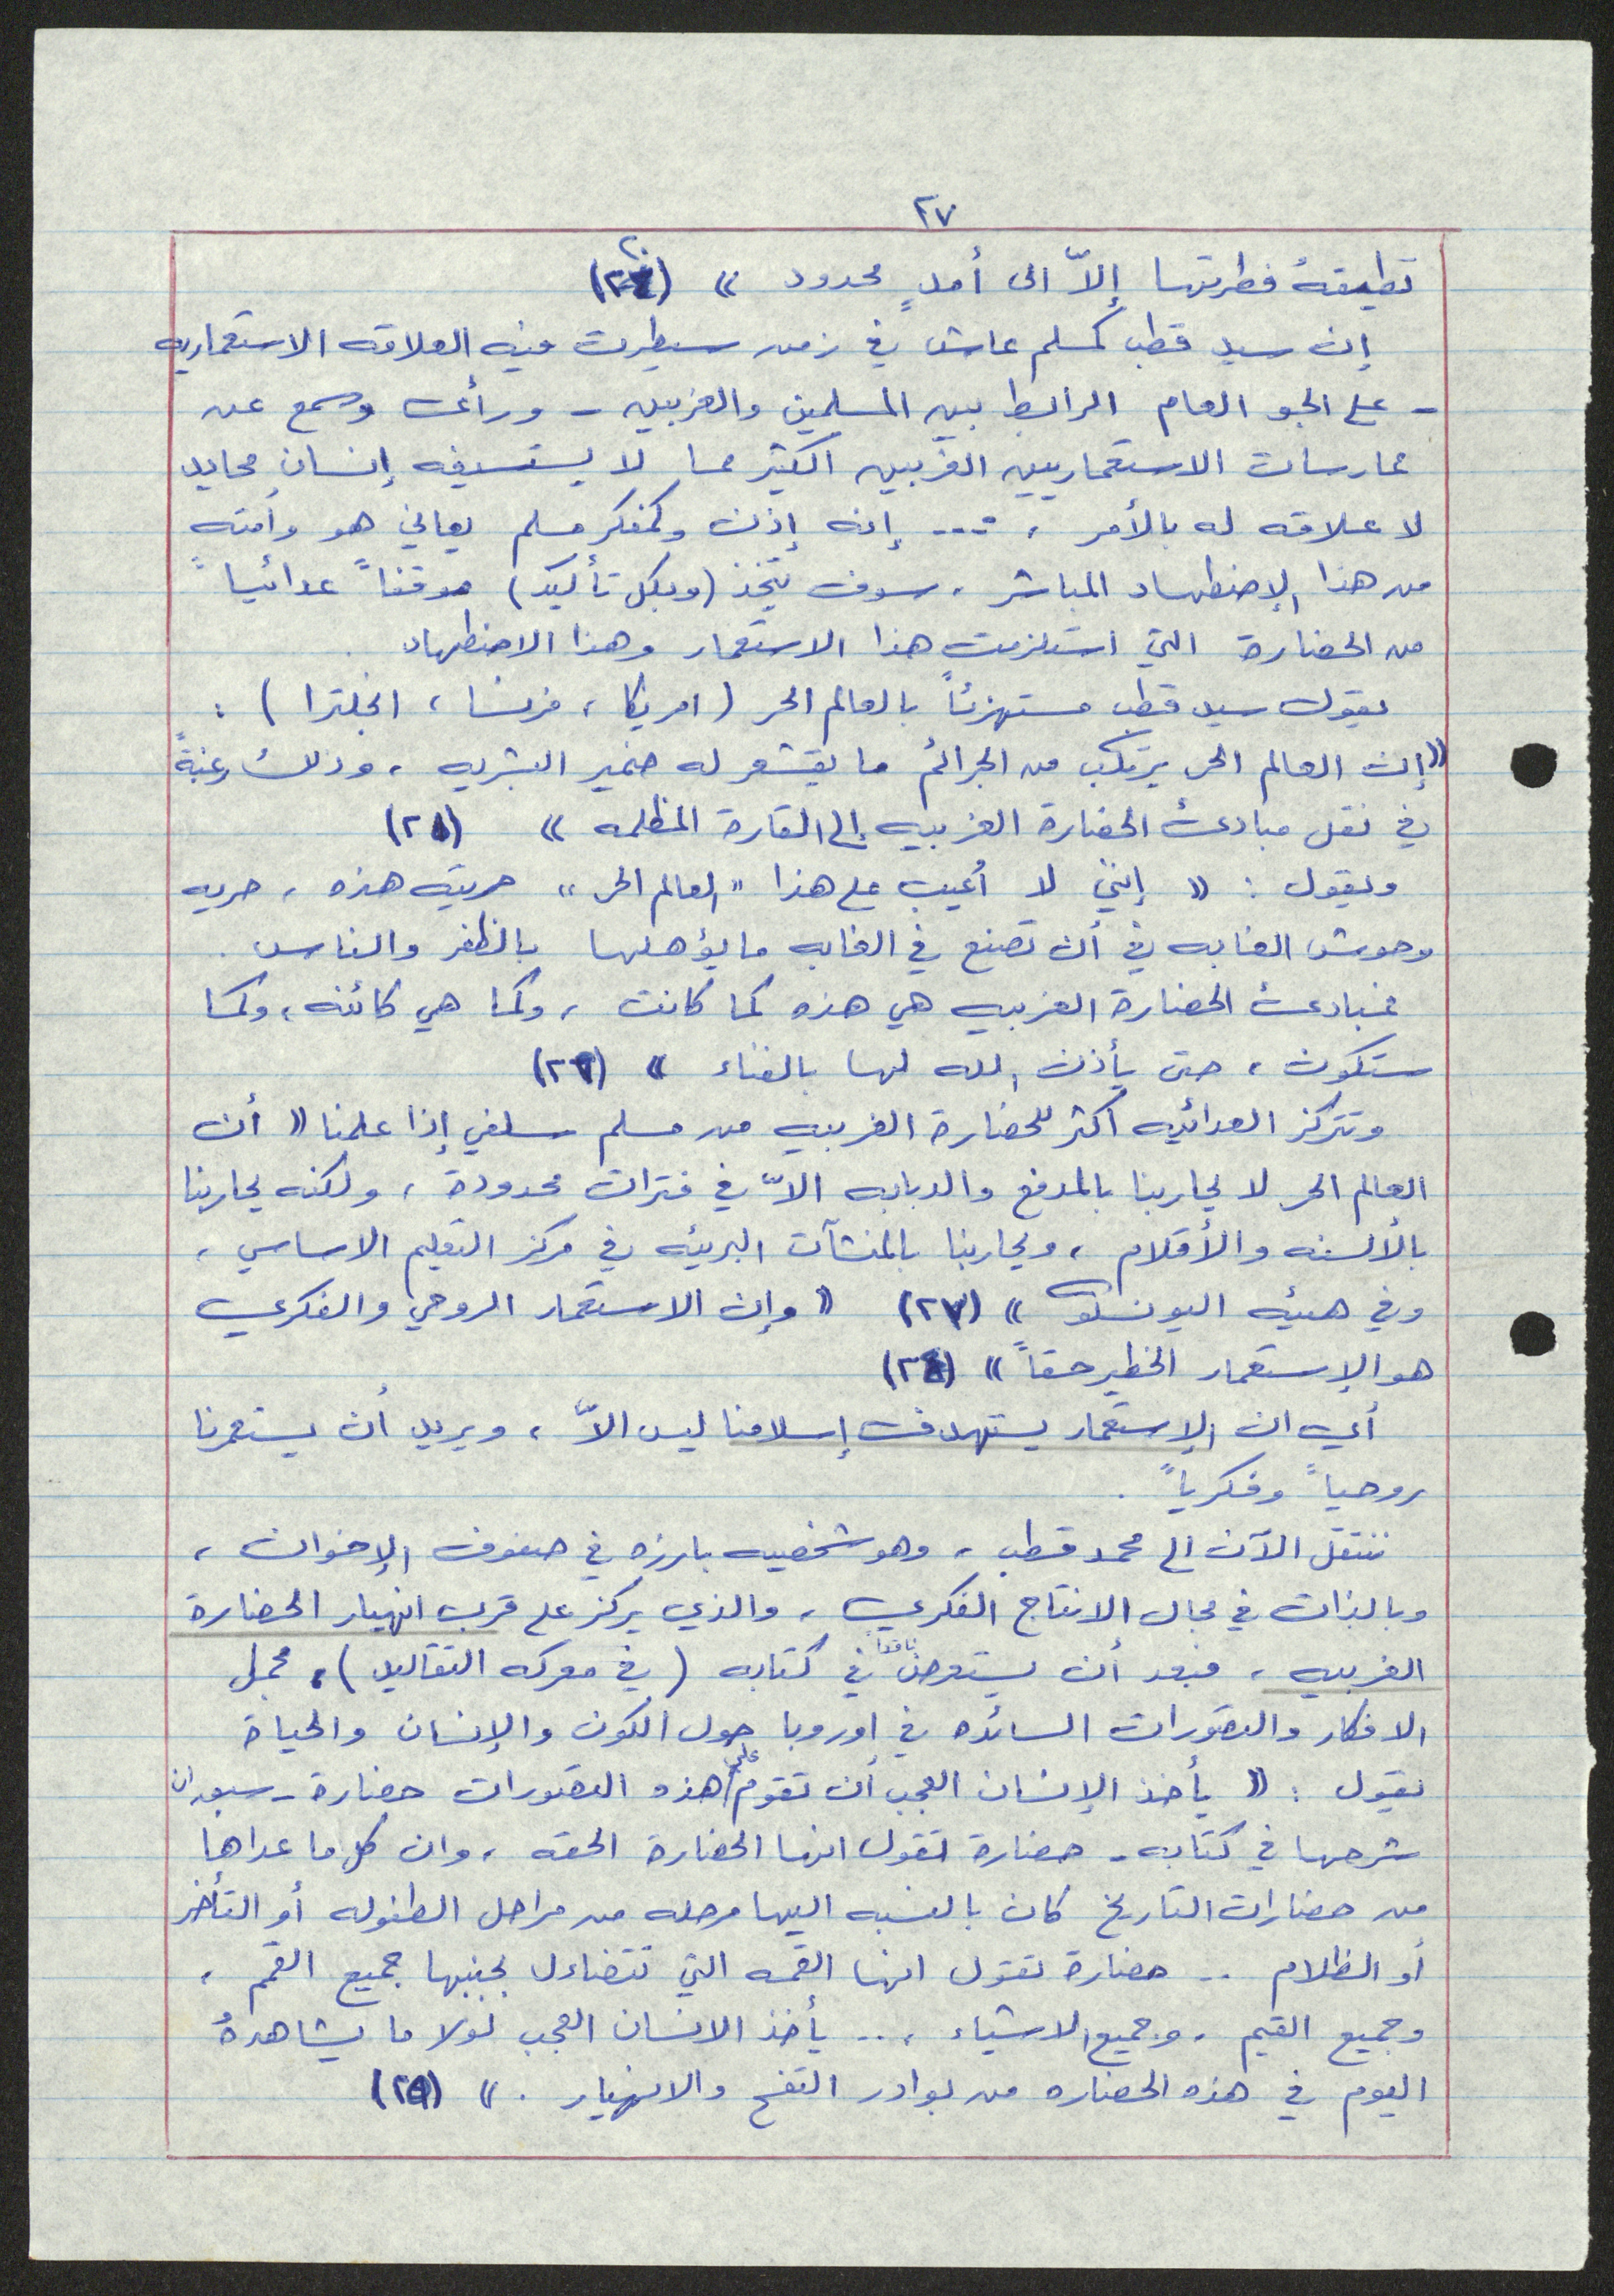 ٢٧
تطيقهُ فطرتها إلاّ الى أمدٍ محدود » (٢٠)
إن سيد قطب كمسلم عاش في زمن سيطرت فيه العلاقه الاستعماريه
- على الجو العام الرابط بين المسلمين والغربيين - ورأى وسمع عن
ممارسات الاستعماريين الغربيين الكثير مما لا يستسيغه إنسان محايد
لا علاقه له بالأمر ، ... إنه إذن وكمفكر مسلم يعاني هو وأمته
من هذا الإضطهاد المباشر ، سوف يتخذ (وبكل تأكيد) موقفاً عدائياً
من الحضارة التي استلزمت هذا الاستعمار وهذا الاضطهاد .
يقول سيد قطب مستهزئاً بالعالم الحر ( امريكا ، فرنسا ، انجلترا ) :
« إن العالم الحر يرتكب من الجرائم ما يقشعر له ضمير البشريه ، وذلك رغبةً
في نقل مبادئ الحضارة الغربيه إلى القارة المظلمه » (٢١)
ويقول : « إنني لا أعيب على هذا "العالم الحر" حريته هذه ، حريه
وحوش الغابه في أن تصنع في الغابه ما يؤهلها بالظفر والناس .
فمبادئ الحضارة الغربيه هي هذه كما كانت ، وكما هي كائنه ، وكما
ستكون ، حتى يأذن الله لها بالفناء » (٢٢)
وتتركز العدائيه أكثر للحضارة الغربيه من مسلم سلفي إذا علمنا « أن
العالم الحر لا يحاربنا بالمدفع والدبابه الاّ في فترات محدودة ، ولكنه يحاربنا
بالألسنه والأقلام ، ويحاربنا بالمنشآت البريئه في مركز التعليم الاساسي ،
وفي هيئه اليونسكو » (٢٧) « وإن الاستعمار الروحي والفكري
هو الإستعمار الخطير حقاً »
أي ان الإستعمار يستهدف إسلامنا ليس الاّ ، ويريد أن يستعمرنا
روحياً وفكرياً .
ننتقل الآن الى محمد قطب ، وهو شخصيه بارزه في صفوف الإخوان ،
وبالذات في مجال الانتاج الفكري ، والذي يركز على قرب انهيار الحضارة
الغربيه ، فبعد أن يستعرض ناقداً في كتابه ( في معركه التقاليد ) ، مجمل
الافكار والتصورات السائده في اوروبا حول الكون والإنسان والحياة
يقول : « يأخذ الإنسان العجب أن تقوم على هذه التصورات حضارة - سبق ان
شرحها في كتابه - حضارة تقول انها الحضارة الحقه ، وان كل ما عداها
من حضارات التاريخ كان بالنسبه اليها مرحله من مراحل الطفوله أو التأخر
أو الظلام .. حضارة تقول انها القمه التي تتضاءل بجنبها جميع القمم ،
وجميع القيم ، وجميع الاشياء ، .. يأخذ الانسان العجب لولا ما يشاهدهُ
اليوم في هذه الحضاره من بوادر التفسخ والانهيار . » (٢٩)